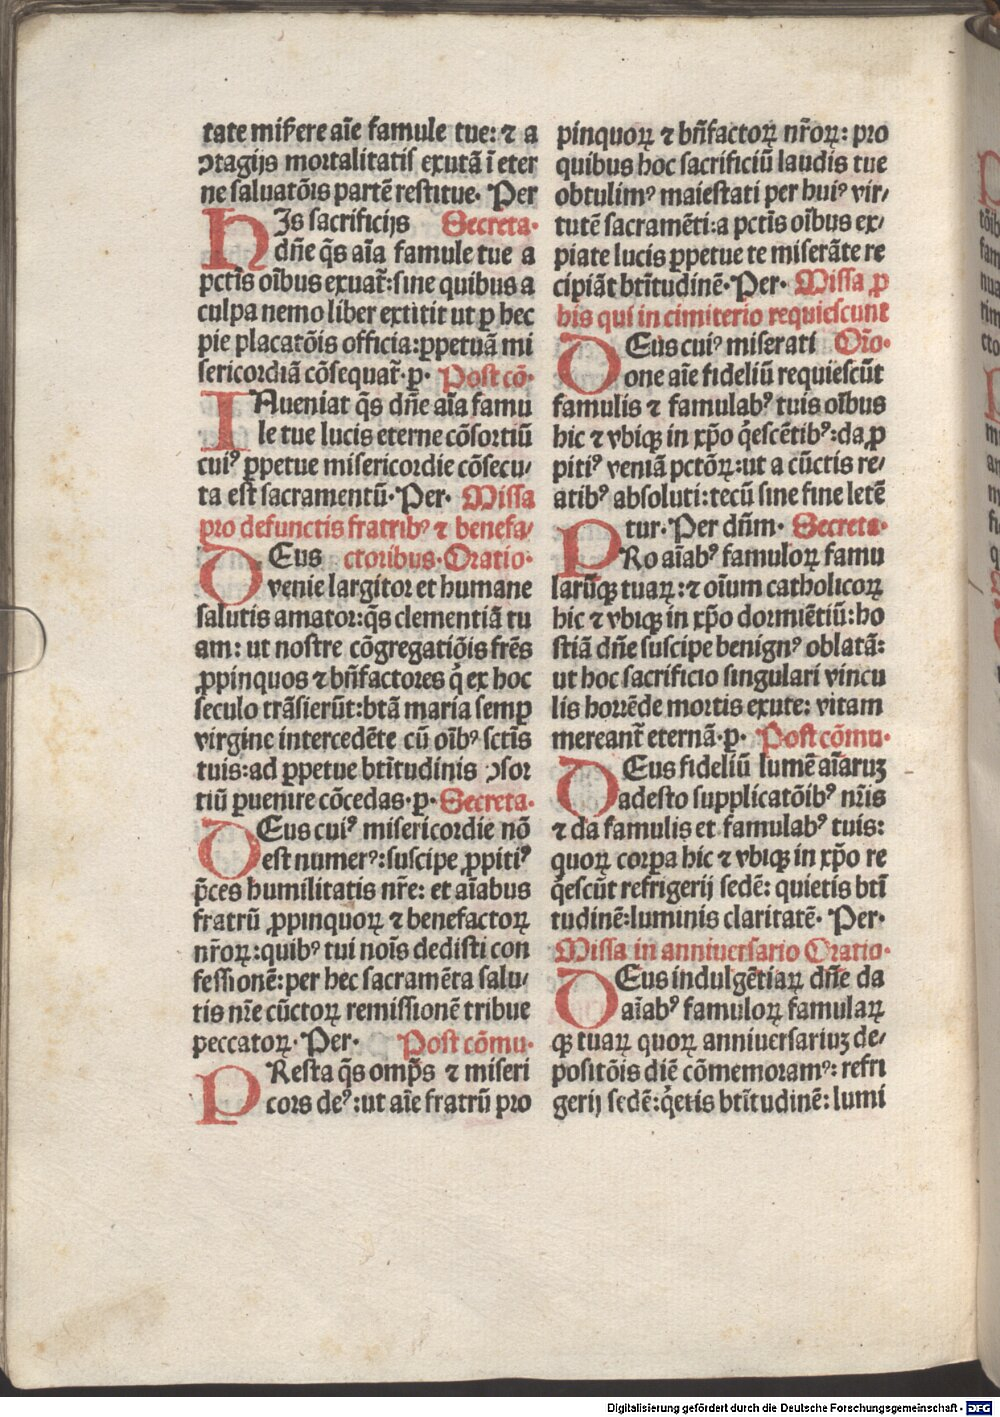 tate miẜere aīe famule tue: ⁊ a
ↄtagijs mortalitatiſ exutā ī eter
ne ſaluatōis partē reſtitue. Per
HIs ſacrificijs Secreta.
dn̄e q̄s aīa famule tue a
pctīs oībus exuat᷑:ſine quibus a
culpa nemo liber extitit ut ꝑ hec
pie placatōis officia:ꝑpetuā mi
ſericordiā cōſequat᷑.ꝑ. Poſt cō.
INueniat q̄s dn̄e aīa famu
le tue lucis eterne cōſortiū
cuiꝰ ꝑpetue miſericordie cōſecu/
ta eſt ſacramentū.Per. Miſſa
pro defunctis fratribꝰ ⁊ benefa/
DEus ctoribus.Oratio.
venie largitor et humane
ſalutis amator:q̄s clementiā tu
am: ut noſtre cōgregatiōis frēs
ꝓpinquos ⁊ bn̄factores q̇ ex hoc
ſeculo trāſierūt:btā maria ſemꝑ
virgine intercedēte cū oībꝰ ſctīs
tuis:ad ꝑpetue btītudinis ↄſor
tiū ꝑuenire cōcedas.ꝑ. Secreta.
DEus cuiꝰ miſericordie nō
eſt numerꝰ:ſuſcipe ꝓpitiꝰ
p̄ces humilitatis nr̄e: et aīabus
fratrū ꝓpinquoꝝ ⁊ benefactoꝝ
nr̄oꝝ:quibꝰ tui noīs dediſti con
feſſionē:per hec ſacramēta ſalu/
tis nr̄e cūctoꝝ remiſſionē tribue
peccatoꝝ.Per. Poſt cōmu.
PReſta q̄s omp̄s ⁊ miſeri
cors deꝰ:ut aīe fratrū pro
pinquoꝝ ⁊ bn̄factoꝝ nr̄oꝝ: pro
quibus hoc ſacrificiū laudis tue
obtulimꝰ maieſtati per huiꝰ vir/
tutē ſacramēti:a pctīs oībus ex/
piate lucis ꝑpetue te miſerāte re
cipiāt btītudinē.Per. Miſſa ꝓ
his qui in cimiterio requieſcunt
DEus cuiꝰ miſerati Oro̅.
one aīe fideliū requieſcūt
famulis ⁊ famulabꝰ tuis oībus
hic ⁊ vbiqꝫ in xp̄o q̇eſcētibꝰ:da ꝓ
pitiꝰ veniā pctōꝝ:ut a cūctis re/
atibꝰ abſoluti:tecū ſine fine letē
tur.Per dn̄m. Secreta.
PRo aīabꝰ famuloꝝ famu
larūqꝫ tuaꝝ:⁊ oīum catholicoꝝ
hic ⁊ vbiqꝫ in xp̄o dormiētiū:ho
ſtiā dn̄e ſuſcipe benignꝰ oblatā:
ut hoc ſacrificio ſingulari vincu
lis horrēde mortis exute: vitam
mereant᷑ eternā.ꝑ. Poſt cōmu.
DEus fideliū lumē aīaruꝫ
adeſto ſupplicatōibꝰ nr̄is
⁊ da famulis et famulabꝰ tuis:
quoꝝ corꝑa hic ⁊ vbiqꝫ in xp̄o re
q̇eſcūt refrigerij ſedē: quietis btī
tudinē:luminis claritatē. Per.
Miſſa in anniuerſario Oratio.
DEus indulgētiaꝝ dn̄e da
aīabꝰ famuloꝝ famulaꝝ
qꝫ tuaꝝ quoꝝ anniuerſariuꝫ de/
poſitōis diē cōmemoramꝰ: refri
gerij ſedē:q̇etis btītudinē: lumi
Digitalisierung gefördert durch die Deutsche Forschungsgemeinschaft - DFG